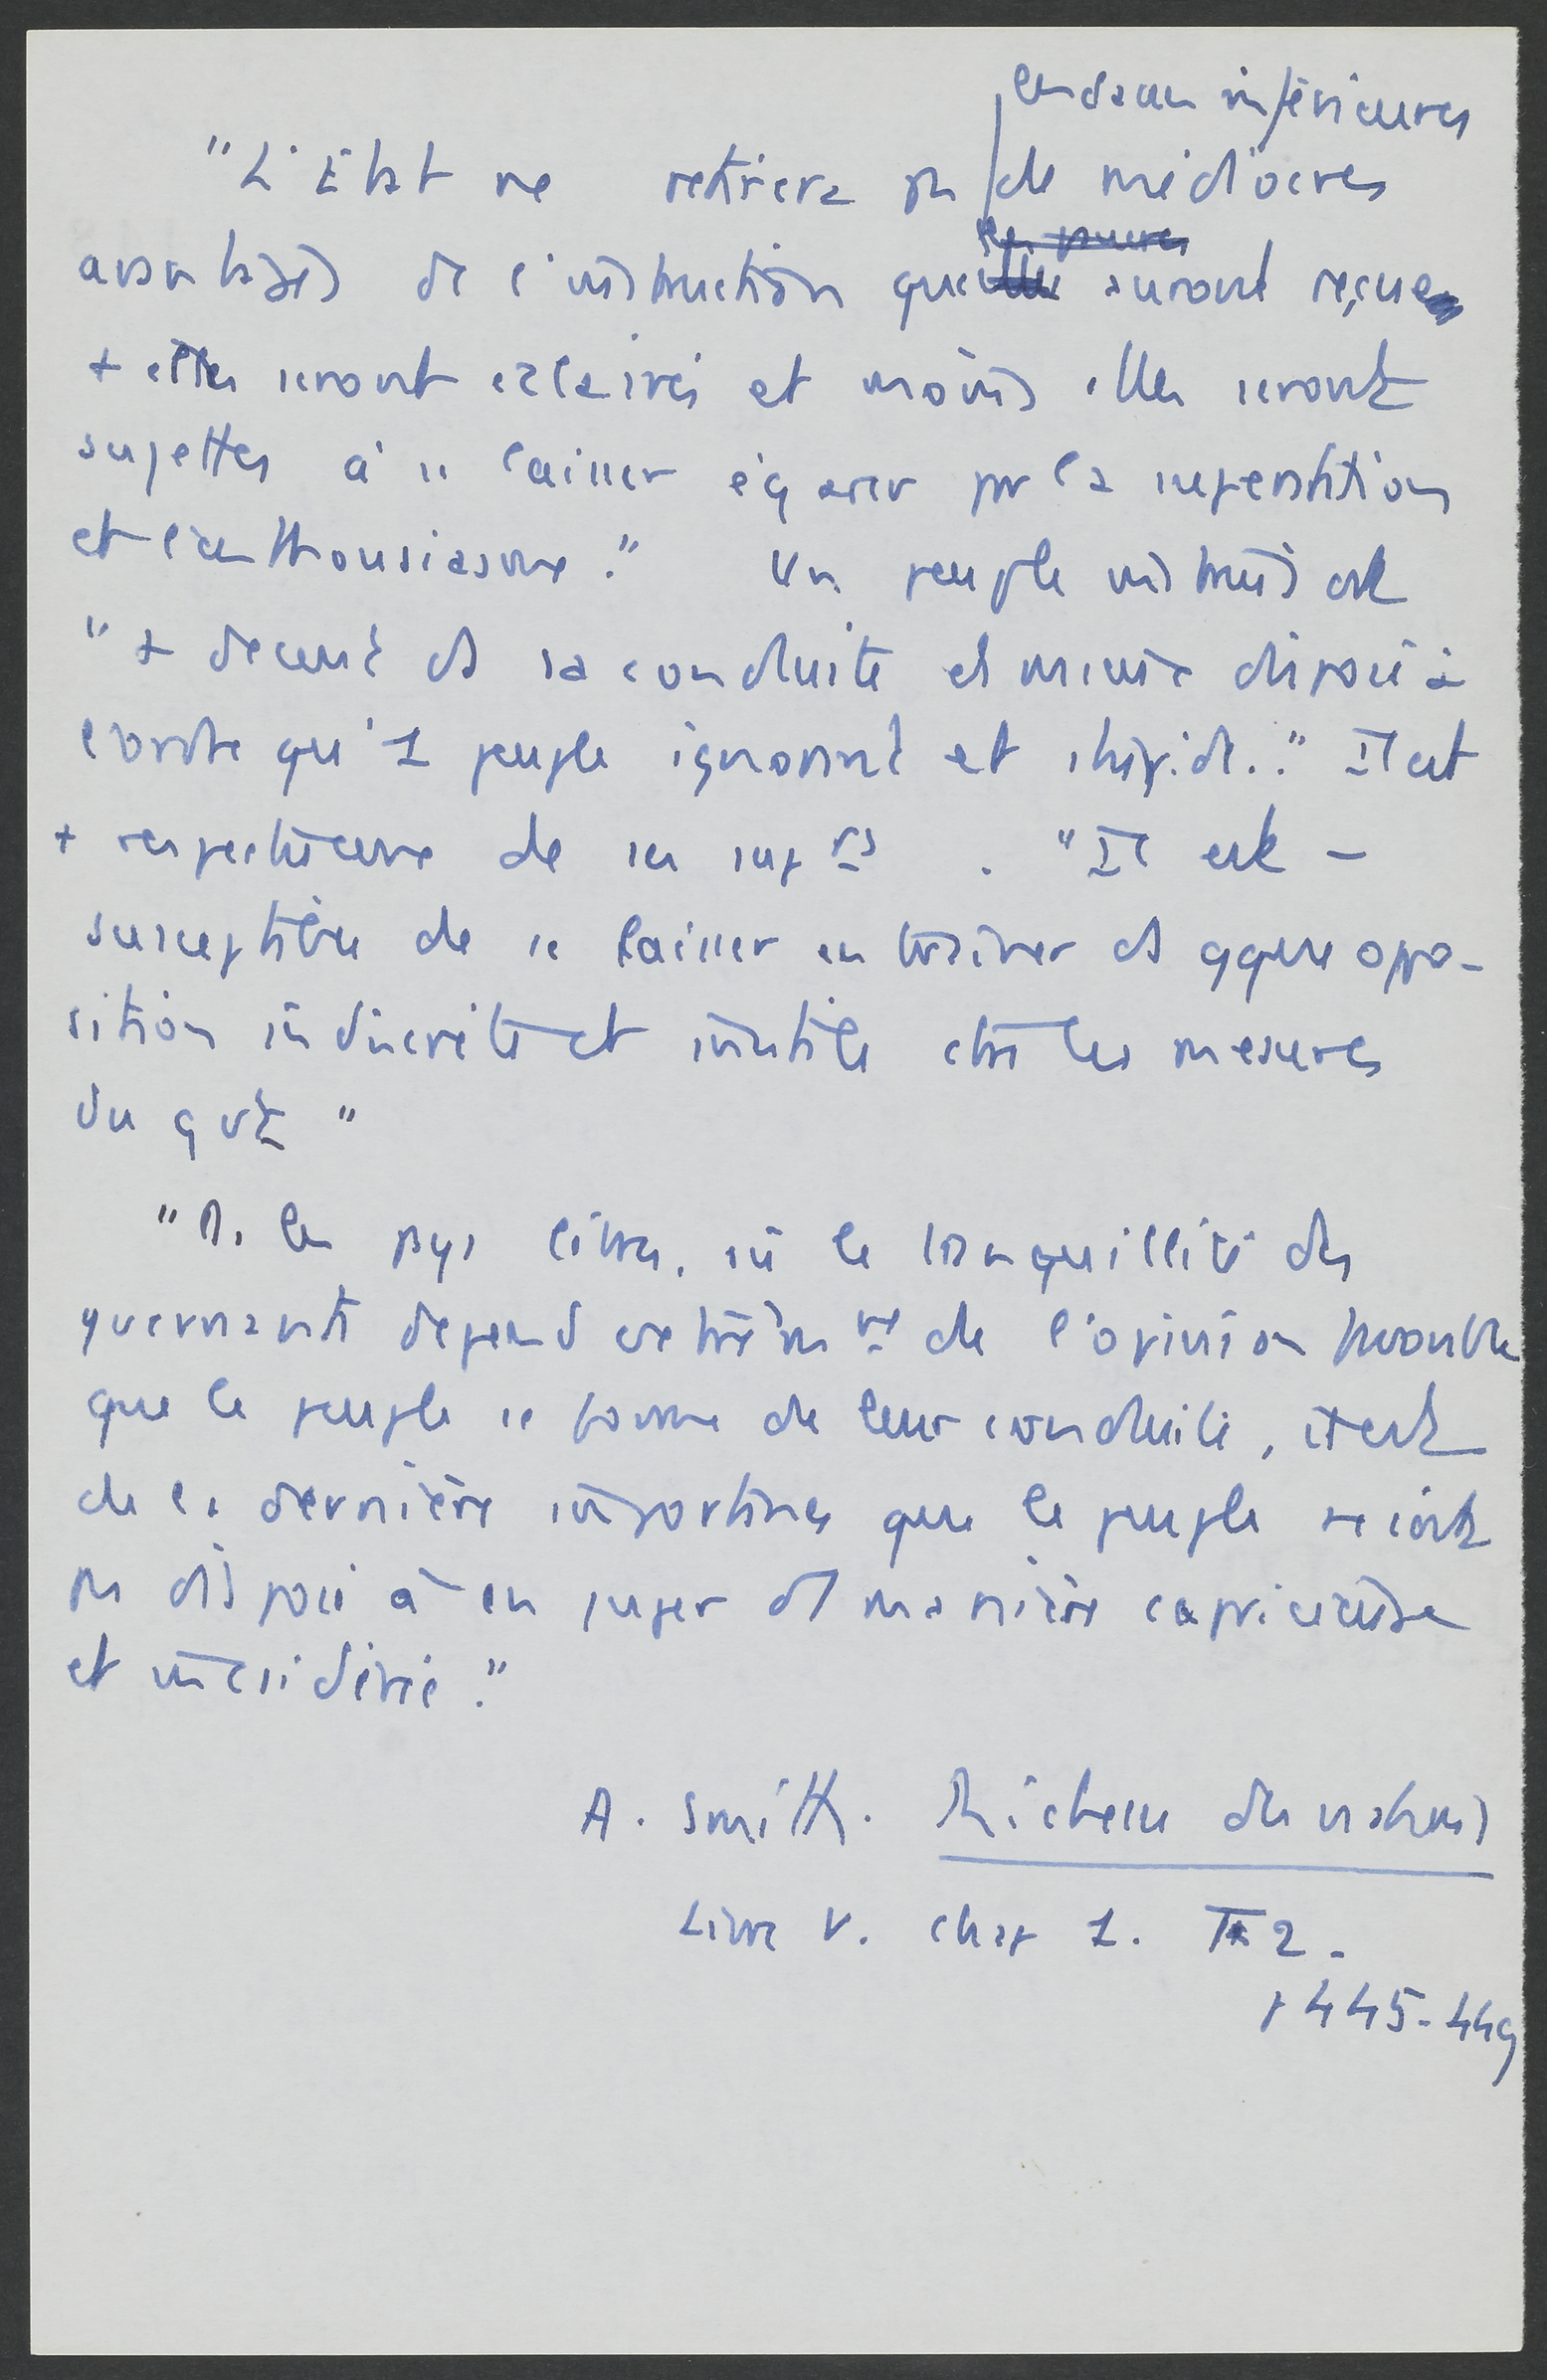 les classes inférieures
"L'Etat ne retirera pas de médiocres
les pauvres
avantages de l'instruction qu'elles auront reçue
+ elles seront éclairées et moins elles seront
sujettes à se laisser égarer par la superstition
et l'enthousiasme." Un peuple instruit est
"+ décent ds sa conduite et mieux disposé à
l'ordre qu'1 peuple ignorant et stupide.." Il est
+ respectueux de ses suprs. "Il est -
susceptible de se laisser entraîner ds qque oppo-
sition indiscrète et inutile ctre les mesures
du gvt"
"Ds les pays libres, où la tranquillité des
gvernants dépend extrêmmt de l'opinion favorable
que le peuple se forme de leur conduite, il est
de la dernière importance que le peuple ne soit
pas disposé à en juger d manière capricieuse
et incsidérée."
A. Smith. Richesse des nations
Livre V. chap 1. T 2.
p 445-449